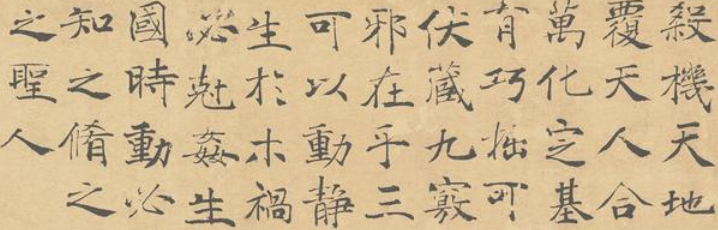 殺機天地
覆天人合
萬化定基
有巧拙可
伏藏九竅
邪在乎三
可以動靜
生於木禍
必尅姦生
國時動必
知之脩之
之聖人